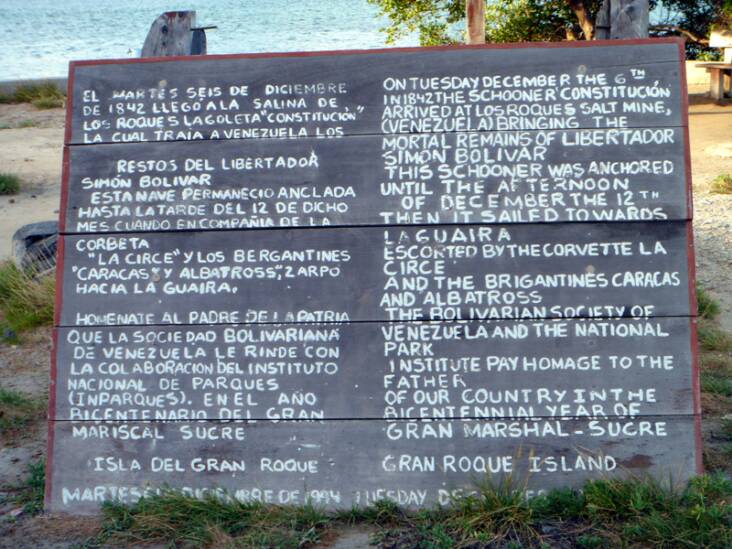 EL MARTES SEIS DE DICIEMBRE
DE 1842 LLEGÓ A LA SALINA DE
LOS ROQUES LA GOLETA "CONSTITUCIÓN"
LA CUAL TRAÍA A VENEZUELA LOS
RESTOS DEL LIBERTADOR
SIMÓN BOLIVAR
ESTA NAVE PERMANECIO ANCLADA
HASTA LA TARDE DEL 12 DE DICHO
MES CUANDO EN COMPAÑIA DE LA
CORBETA
"LA CIRCE" Y LOS BERGANTINES
"CARACAS" Y ALBATROSS", ZARPO
HACIA LA GUAIRA.
HOMENATE AL PADRE DE LA PATRIA
QUE LA SOCIEDAD BOLIVARIANA
DE VENEZUELA LE RINDE CON
LA COLABORACION DEL INSTITUTO
NACIONAL DE PARQUES
(INPARQUES). EN EL AÑO
BICENTENARIO DEL GRAN
MARISCAL SUCRE
ISLA DEL GRAN ROQUE
MARTES DICIEMBRE DE 1994
ON TUESDAY DECEMBER THE 6TH,
IN 1842 THE SCHOONER CONSTITUCIÓN
ARRIVED AT LOS ROQUES SALT MINE,
(VENEZUELA) BRINGING THE
MORTAL REMAINS OF LIBERTADOR
SIMÓN BOLIVAR
THIS SCHOONER WAS ANCHORED
UNTIL THE AFTERNOON
OF DECEMBER THE 12TH
THEN IT SAILED TO WARDS
LA GUAIRA
ESCORTED BY THE CORVETTE LA
CIRCE
AND THE BRIGANTINES CARACAS
AND ALBATROSS
THE BOLIVARIAN SOCIETY OF
VENEZUELA AND THE NATIONAL
PARK
INSTITUTE PAY HOMAGE TO THE
FATHER
OF OUR COUNTRY IN THE
BICENTENNIAL YEAR OF
GRAN MARSHAL-SUCRE
GRAN ROQUE ISLAND
TUESDAY